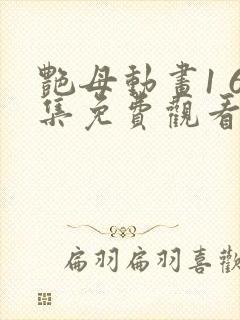 艷母動畫1 6
集免費觀看
扁羽扁羽喜歡